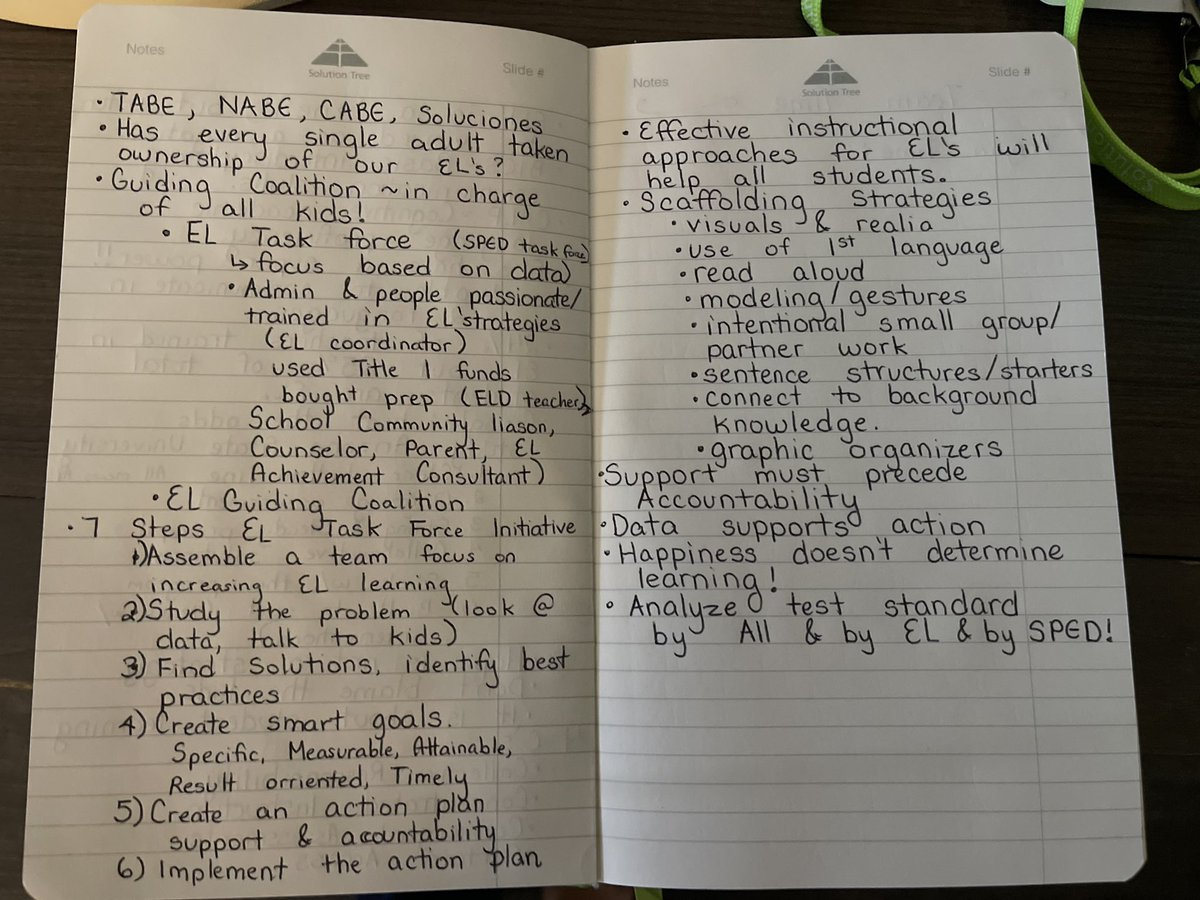 Notes
Solution Tree
Slide #
• TABE, NABE, CABE, Soluciones
• Has every single adult taken
ownership of our EL's?
• Guiding Coalition ~in charge
of all kids!
• EL Task force (SPED task force)
↳ focus based on data)
• Admin & people passionate/
trained in EL strategies
(EL coordinator)
used Title 1 funds
bought prep (ELD teacher),
School Community liason,
Counselor, Parent, EL
Achievement Consultant)
• EL Guiding Coalition
• 7 Steps EL Task Force Initiative
1) Assemble a team focus on
increasing EL learning
2) Study the problem (look @
data, talk to kids)
3) Find Solutions, identify best
practices
4) Create smart goals.
Specific, Measurable, Attainable,
Result orriented, Timely
5) Create an action plan
support & accountability
6) Implement the action plan
Notes
Solution Tree
Slide #
• Effective instructional
approaches for EL's will
help all students.
• Scaffolding Strategies
• visuals & realia
• use of 1st language
• read aloud
• modeling/gestures
• intentional small group/
partner work
• sentence structures/starters
• connect to background
knowledge.
• graphic organizers
• Support must precede
Accountability
• Data supports action
• Happiness doesn't determine
learning!
• Analyze test standard
by All & by EL & by SPED!